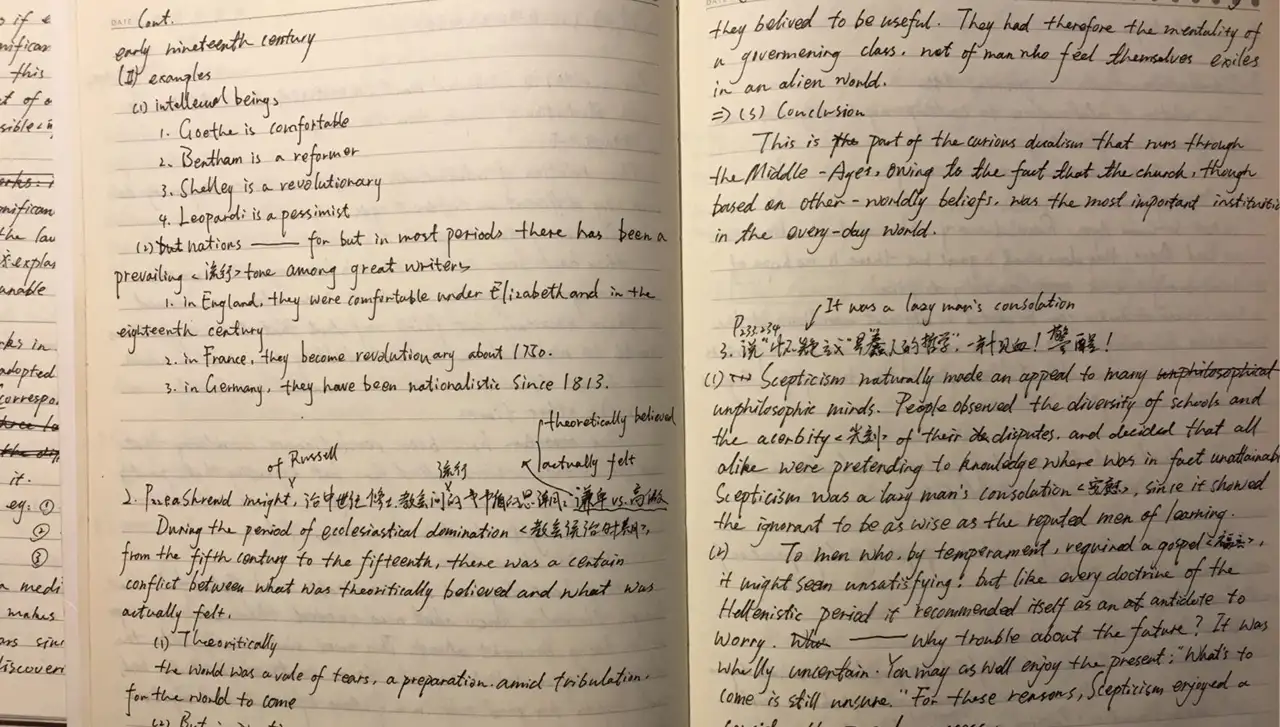 o if e
nifican
this
t of a
sible
rks:
nifican
the lau
explas
anable
rks in
adopted
correspo
it.
eg: ①
②
③
a medi
makus
ars sin
discoveri
DATE Cont.
early nineteenth century
(II) examples
(1) intellecual beings
1. Goethe is comfortable
2. Bentham is a reformer
3. Shelley is a revolutionary
4. Leopardi is a pessimist
(2) but nations —— for but in most periods there has been a
prevailing <流行> tone among great writers
1. in England, they were comfortable under Elizabeth and in the
eighteenth century
2. in France, they become revolutionary about 1750.
3. in Germany, they have been nationalistic since 1813.
theoretically believed
actually felt
of Russell
流行
2. P shrewd insight, 治中世纪修士、教会问的 思潮: 谦卑 vs. 高傲
During the period of ecclesiastical domination <教会统治时期>,
from the fifth century to the fifteenth, there was a certain
conflict between what was theoritically believed and what was
actually felt.
(1) Theoritically
the world was a vale of tears, a preparation, amid tribulation,
for the world to come
(2) But in
DATE
they belived to be useful. They had therefore the mentality of
a governening class, not of man who feel themselves exiles
in an alien world.
=> (3) Conclusion
This is the part of the curious dualism that runs through
the Middle-Ages, owing to the fact that the church, though
based on other-worldly beliefs, was the most important instituitio
in the every-day world.
It was a lazy man's consolation
P233.234
3. 说"怀疑主义"是"懒人的哲学", 一针见血! 警醒!
(1) Scepticism naturally made an appeal to many unphilosophical
unphilosophic minds. People observed the diversity of schools and
the acerbity <尖刻> of their disputes, and decided that all
alike were pretending to knowledge where was in fact unattainab
Scepticism was a lazy man's consolation <安慰>, since it showed
the ignorant to be as wise as the reputed men of learning.
(2) To men who, by temperament, required a gospel <福音>,
it might seem unsatisfying; but like every doctrine of the
Hellenistic period it recommended itself as an antidute to
worry. —— Why trouble about the future? It was
whelly uncertain. You may as well enjoy the present; "What's to
come is still unsure." For these reasons, Scepticism enjoyed a